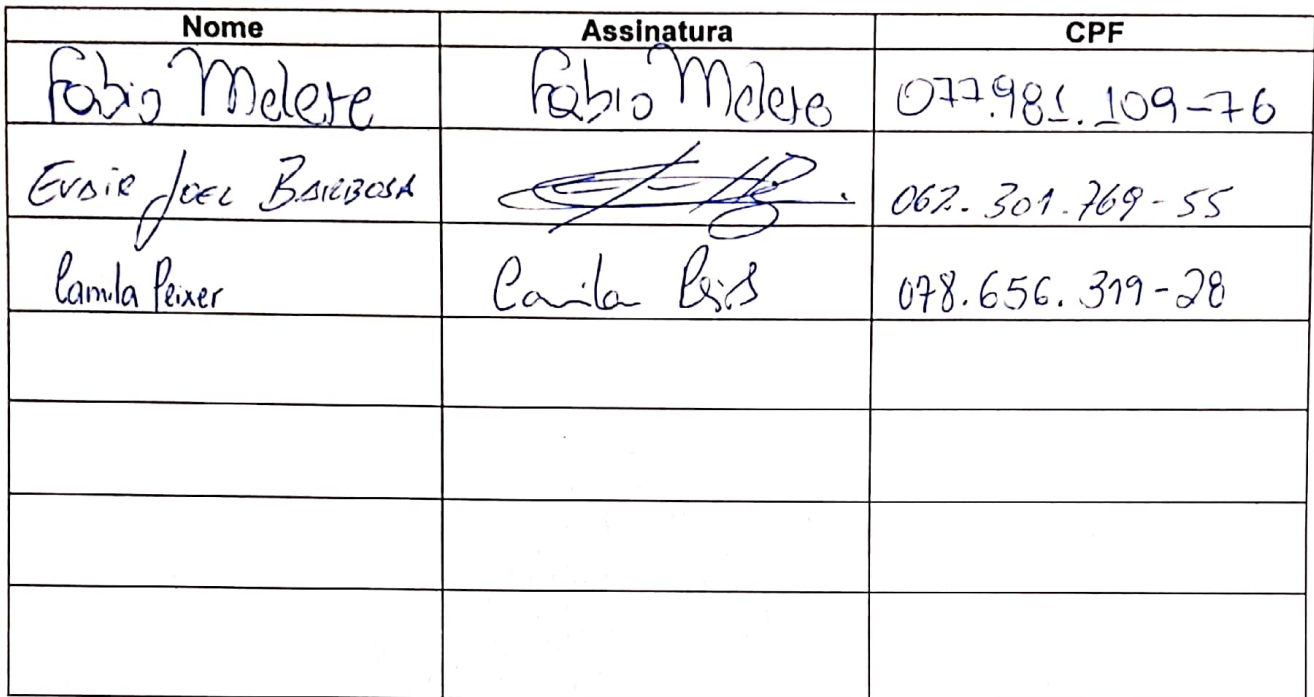 Nome Assinatura CPF
Fabio Melere Fabio Melere 077.981.109-76
EVAIR JOEL BARBOSA 062.301.769-55
Camila Peixer Camila 078.656.319-28